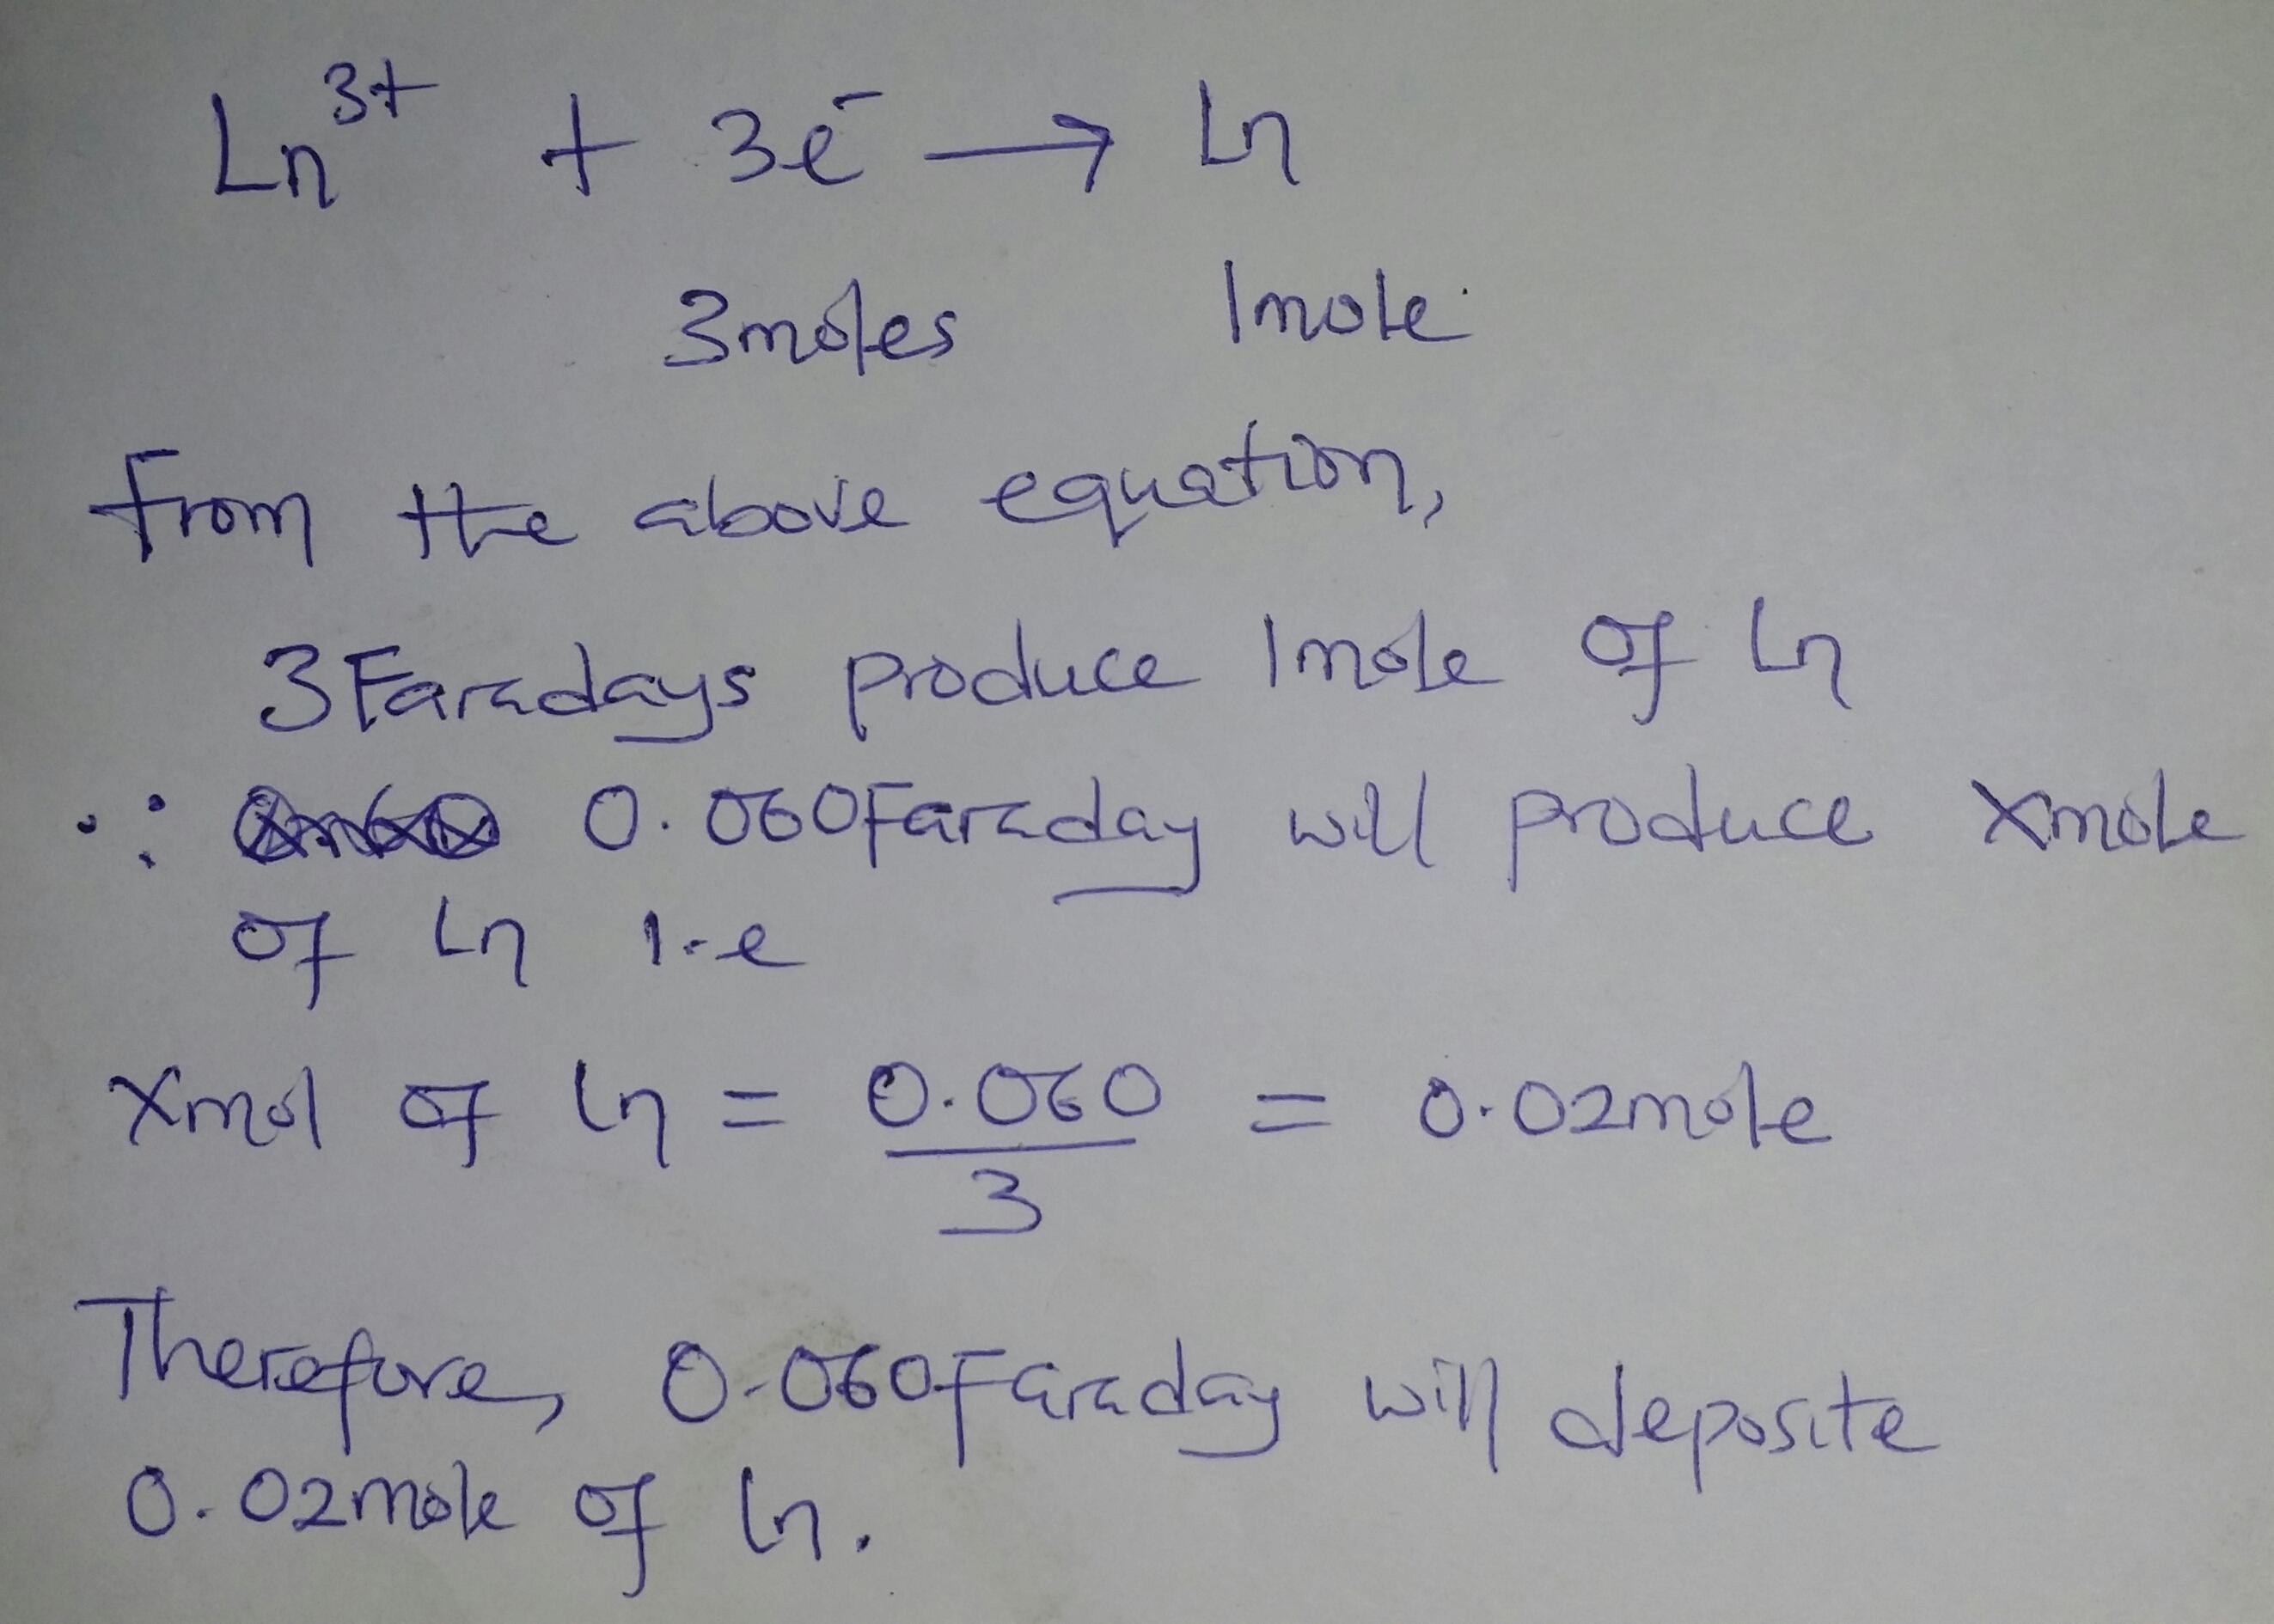 Ln³⁺ + 3e⁻ → Ln
3moles 1mole
From the above equation,
3 Faradays produce 1mole of Ln
∴ 0.060Faraday will produce xmole
of Ln i.e
xmol of Ln = 0.060/3 = 0.02mole
Therefore, 0.060Faraday will deposite
0.02mole of Ln.